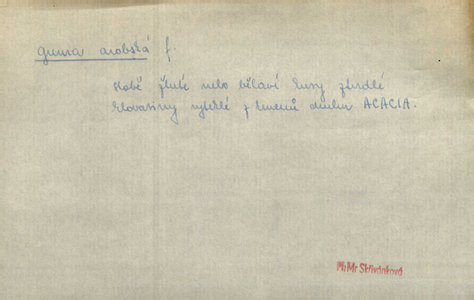 guma arabská f.
slabě žluté nebo bělavé kusy ztvrdlé
klovatiny vyteklé z kmenů druhu ACACIA.
PhMr Skřivánková